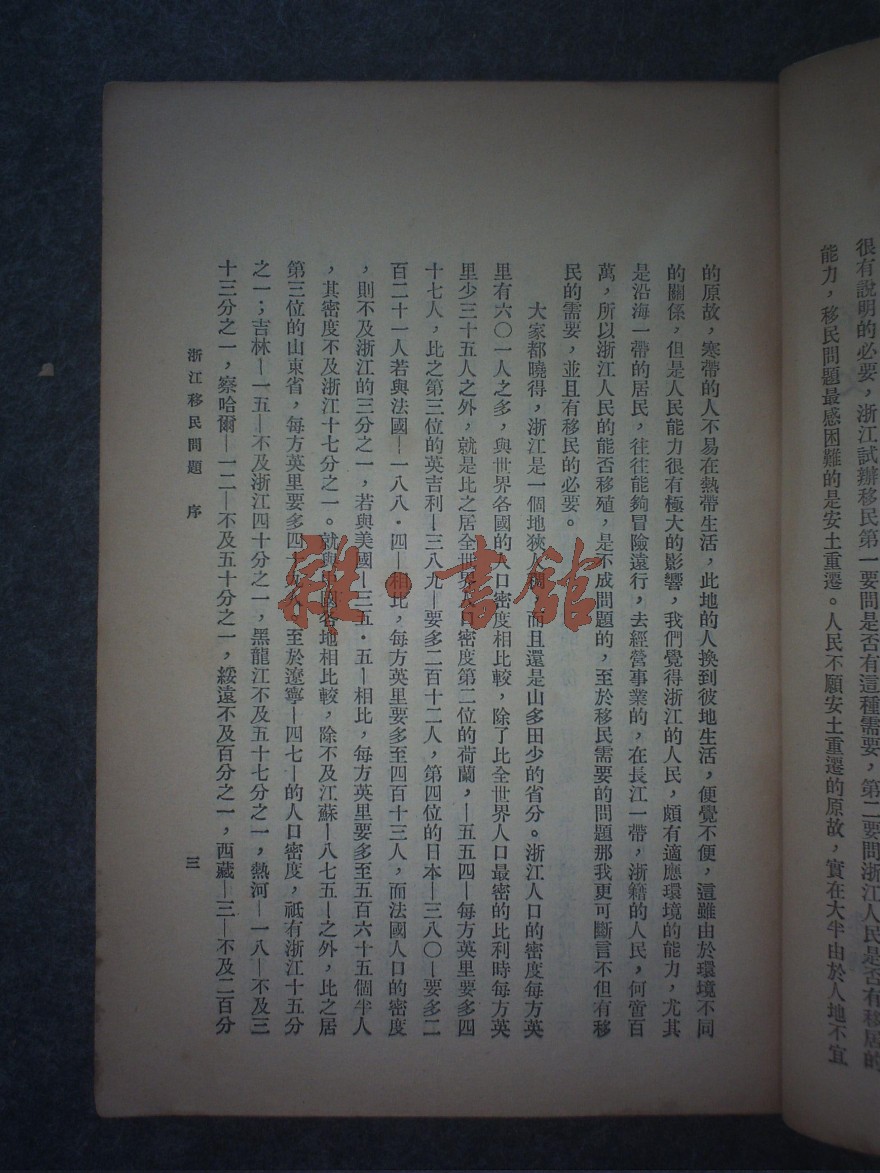 很有說明的必要，浙江試辦移民第一要問是否有這種需要，第二要問浙江人民是否有移居的
能力，移民問題最感困難的是安土重遷。人民不願安土重遷的原故，實在大半由於人地不宜
的原故，寒帶的人不易在熱帶生活，此地的人換到彼地生活，便覺不便，這雖由於環境不同
的關係，但是人民能力很有極大的影響，我們覺得浙江的人民，頗有適應環境的能力，尤其
是沿海一帶的居民，往往能夠冒險遠行，去經營事業的，在長江一帶，浙籍的人民，何啻百
萬，所以浙江人民的能否移殖，是不成問題的，至於移民需要的問題那我更可斷言不但有移
民的需要，並且有移民的必要。
大家都曉得，浙江是一個地狹人稠，而且還是山多田少的省分。浙江人口的密度每方英
里有六〇一人之多，與世界各國的人口密度相比較，除了比全世界人口最密的比利時每方英
里少三十五人之外，就是比之居全世界人口密度第二位的荷蘭，—五五四—每方英里要多四
十七人，比之第三位的英吉利—三八九—要多二百十二人，第四位的日本—三八〇—要多二
百二十一人若與法國—一八八·四—相比，每方英里要多至四百十三人，而法國人口的密度
，則不及浙江的三分之一，若與美國—三五·五—相比，每方英里要多至五百六十五個半人
，其密度不及浙江十七分之一。就與中國各地相比較，除不及江蘇—八七五—之外，比之居
第三位的山東省，每方英里要多四十九人，至於遼寧—四七—的人口密度，祇有浙江十五分
之一；吉林—一五—不及浙江四十分之一，黑龍江不及五十七分之一，熱河—一八—不及三
十三分之一，察哈爾—一二—不及五十分之一，綏遠不及百分之一，西藏—三—不及二百分
浙江移民問題 序
三
雜·書館